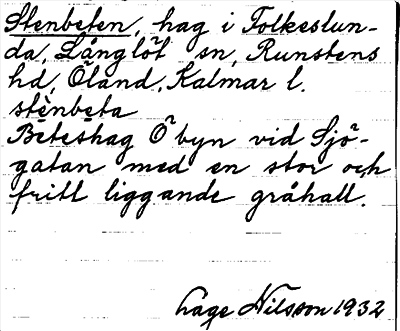 Stenbeten, hag i Folkeslun-
da, Långlöt sn, Runstens
hd, Öland, Kalmar l.
stènbeta
Beteshag Ö byn vid Sjö-
gatan med en stor och
fritt liggande gråhall.
Åge Nilsson 1932